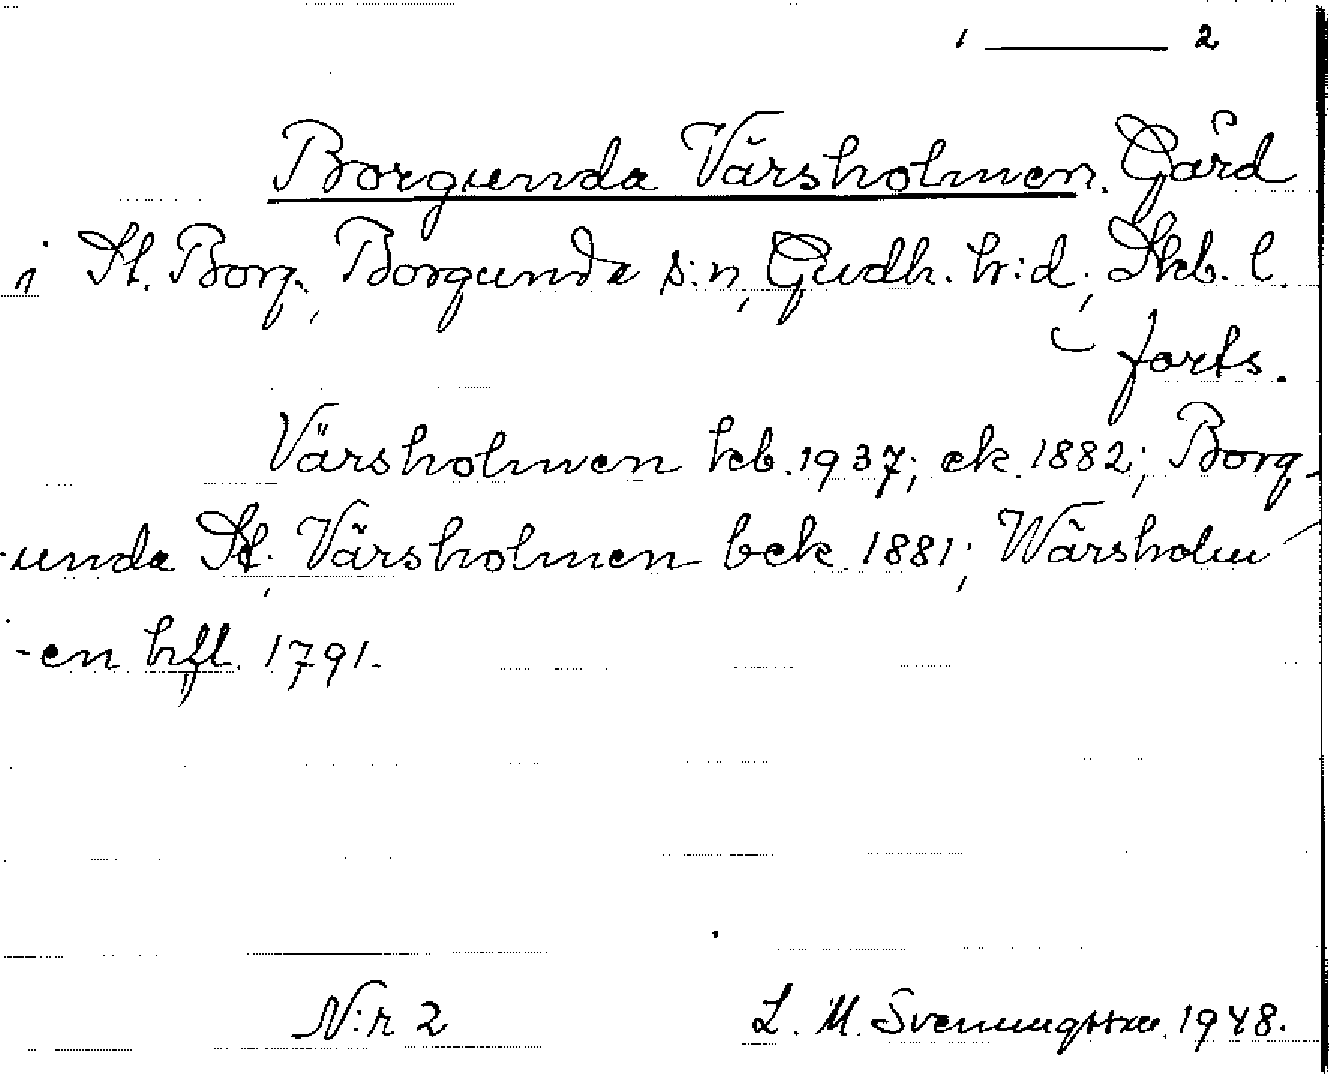 1 — 2
Borgunda Värsholmen. Gård
i St. Borg., Borgunda s:n, Gudh. h:d, Skb. l.
forts.
Värsholmen kcb. 1937; ek. 1882; Borg-
unda St., Värsholmen bek 1881; Wärsholm
-en hfl. 1791.
N:r 2 L. M. Svenungsson 1948.